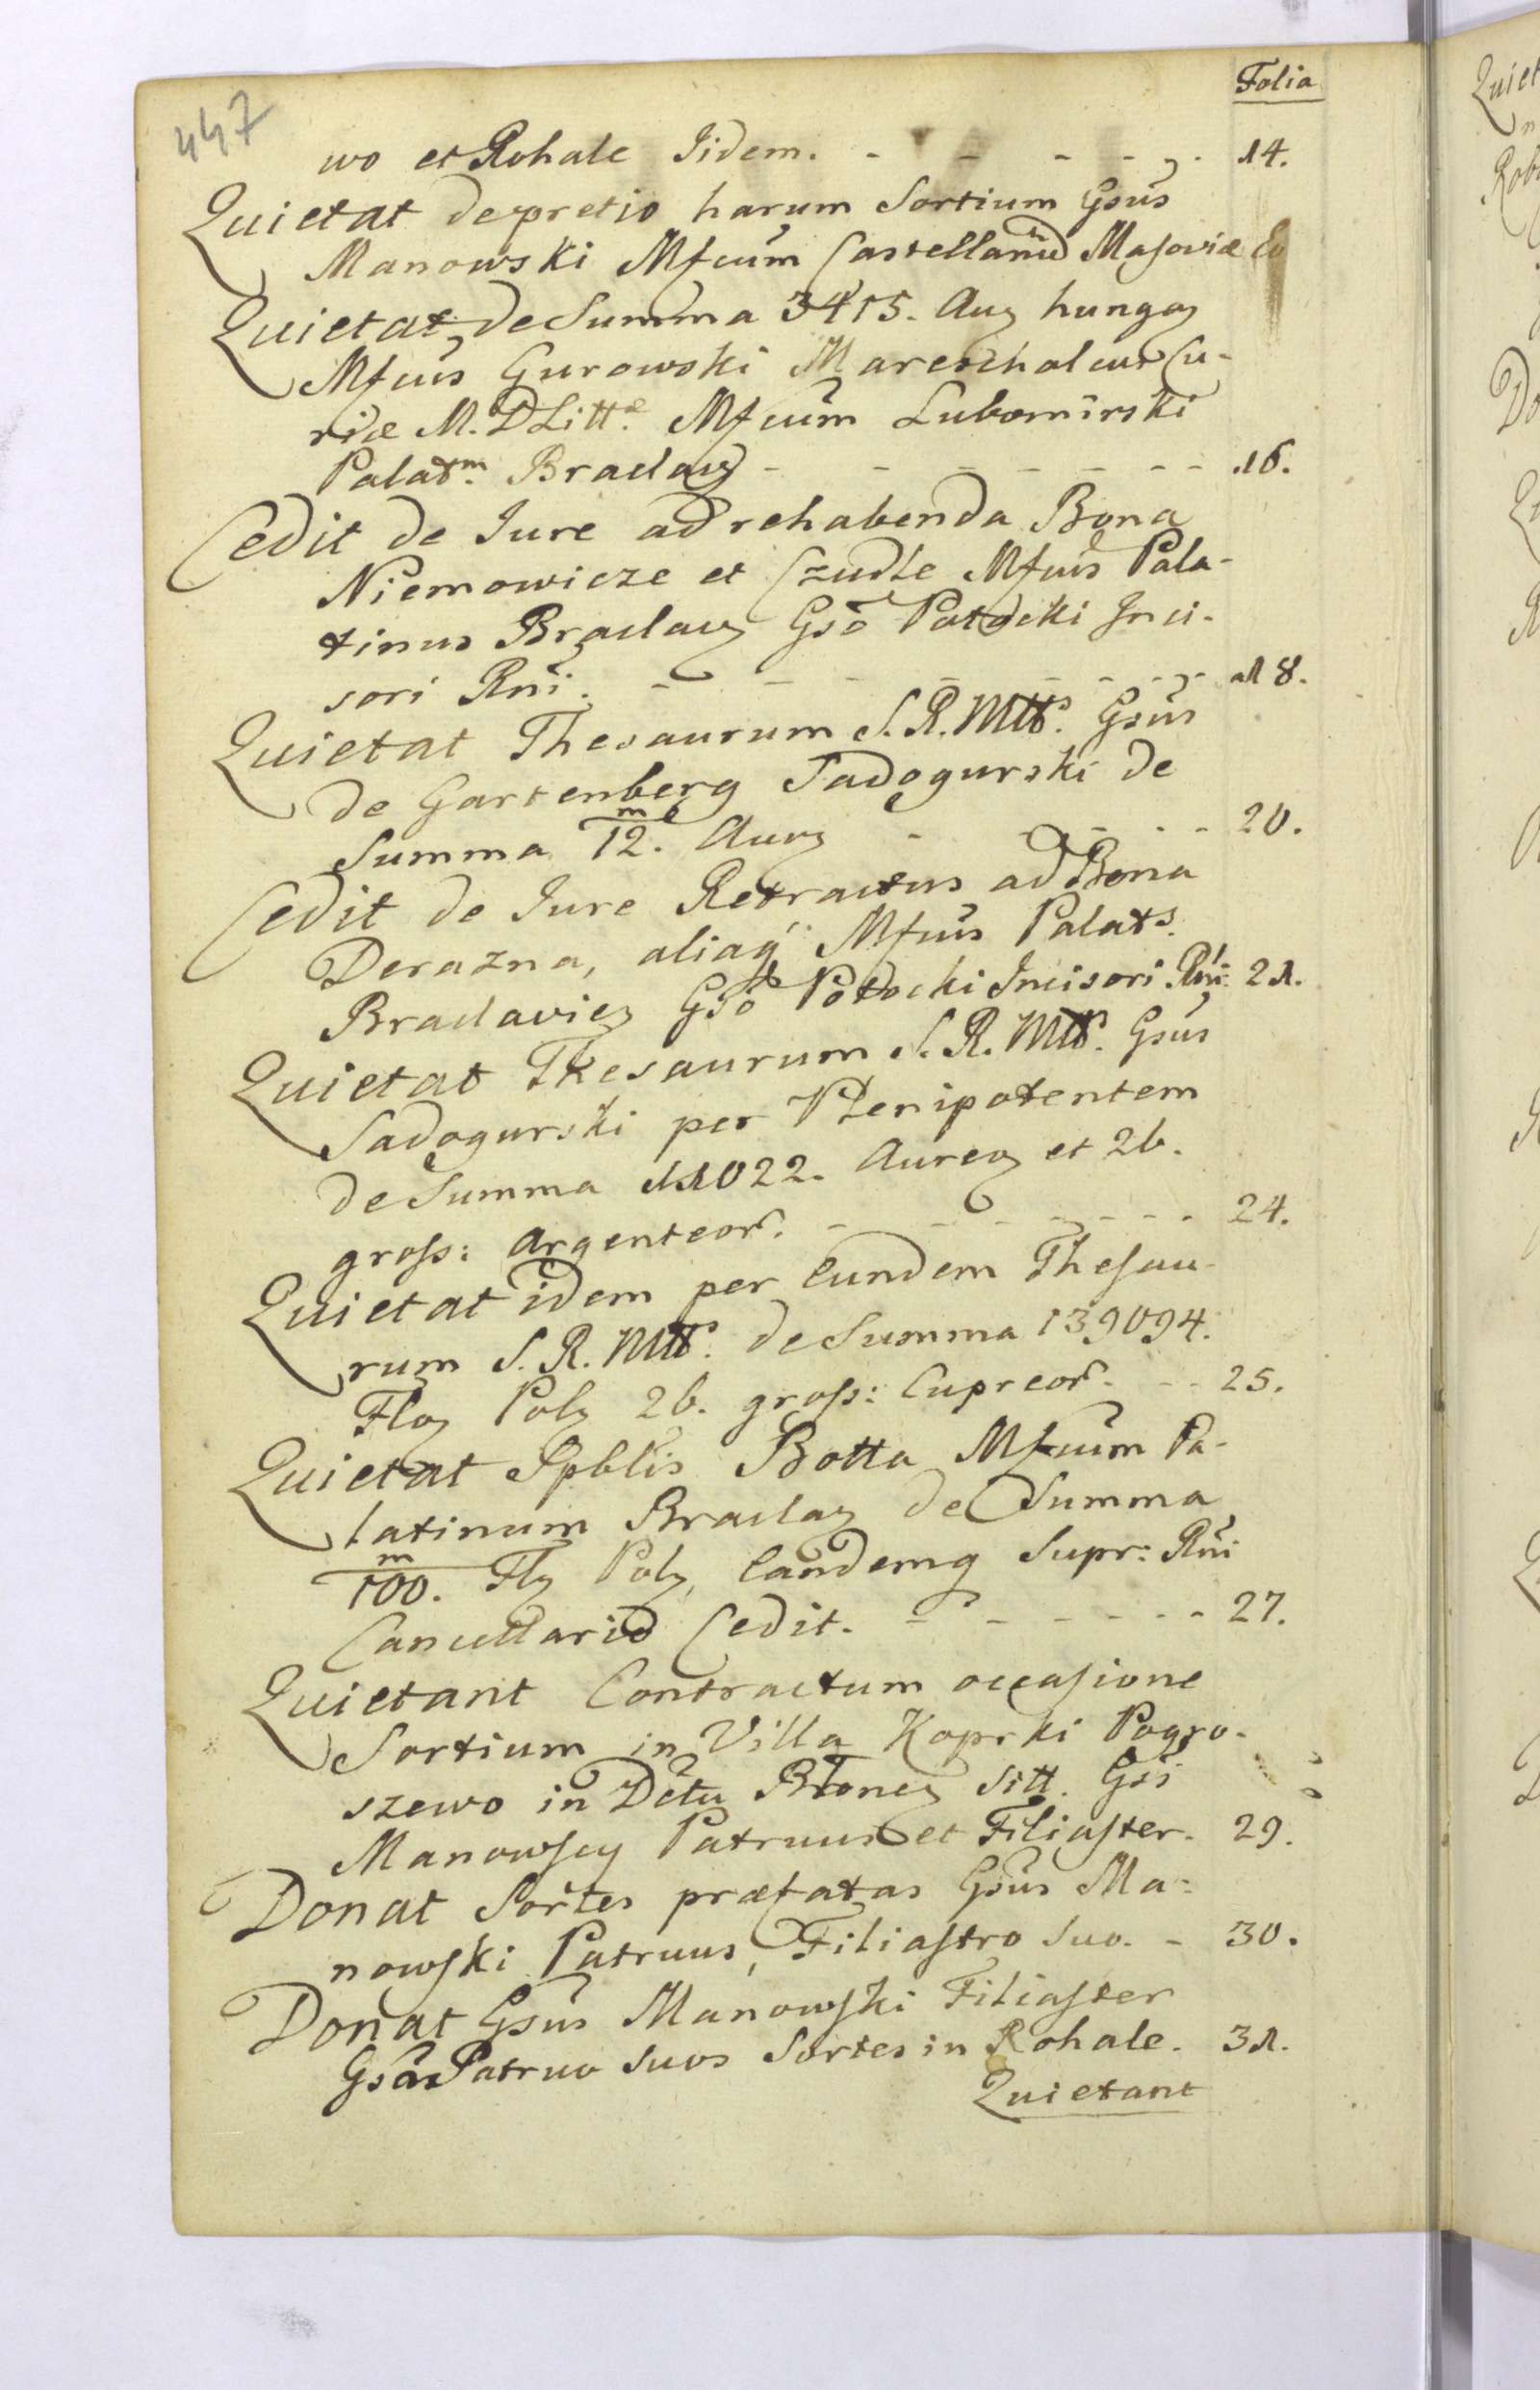 447
Folia
wo et Rohale Iidem. - - - - - 14.
Quietat de pretio harum Sortium Gsūs
Manowski Mfcum Castellanū Masoviæ Eo
Quietat de Summa 3415. Aur hungar
Mfcus Gurowski Mareschalcus Cu-
riæ M. D Littæ. Mfcum Lubomirski
Palatm. Braclav - - - - - - - 16.
Cedit de Iure ad rehabenda Bona
Niemowicze et Czudle Mfcus Pala-
tinus Braclav Gsō Potocki Inci-
sori Rni. - - - - - - - 18.
Quietat Thesaurum S. R. Mttis. Gsūs
de Gartenberg Sadogurski de
Summa m/12. Aur - - - - - 20.
Cedit de Iure Retractus ad Bona
Derazna, aliaq Mfcus Palats.
Braclavien Gsō Potocki Incisori Rni. 21.
Quietat Thesaurum S. R. Mttis. Gsūs
Sadogurski per Plenipotentem
de Summa 11022. Aureor et 26.
gross: argenteor. - - - - - - - 24.
Quietat idem per Eundem Thesau-
rum S. R. Mttis. de Summa 139094.
Flor Pol 26. gross: Cupreor. - - 25.
Quietat Spblis Botta Mfcum Pa-
latinum Braclav de Summa
m/100. Fl Pol, Eandemq Supr: Rni
Cancellario Cedit. - - - - - - 27.
Quietant Contractum occasione
Sortium in Villa Koprki Pogro-
szewo in Dctu Blonen Sitt. Gsi
Manowscy Patruus et Filiaster. 29.
Donat Sortes præfatas Gsūs Ma-
nowski Patruus, Filiastro Suo. - 30.
Donat Gsūs Manowski Filiaster
Gsō Patruo Suos Sortes in Rohale. 31.
Quietant